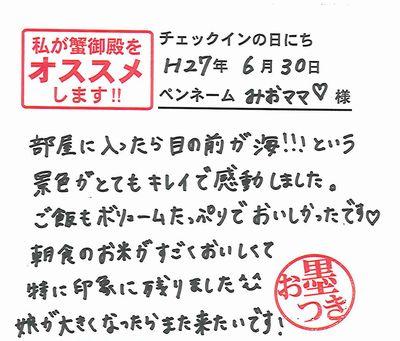 私が蟹御殿を
オススメ
します!!
チェックインの日にち
H27年 6月30日
ペンネーム みおママ♡ 様
部屋に入ったら目の前が海!!!という
景色がとてもキレイで感動しました。
ご飯もボリュームたっぷりでおいしかったです♡
朝食のお米がすごくおいしくて
特に印象に残りました^^
娘が大きくなったらまた来たいです!
お墨つき